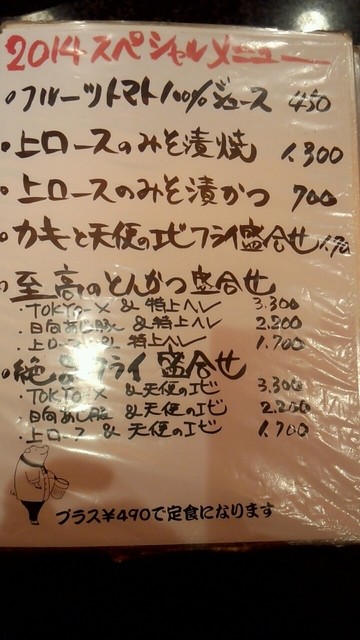 2014スペシャルメニュー
・フルーツトマト100%ジュース 450
・上ロースのみそ漬焼 1.300
・上ロースのみそ漬かつ 700
・カキと天使のエビフライ盛合せ
・至高のとんかつ盛合せ
・TOKYO X & 特上ヘレ 3.300
・日向あじ豚 & 特上ヘレ 2.200
・上ロース & 特上ヘレ 1.700
・絶品フライ盛合せ
・TOKYO X & 天使のエビ 3.300
・日向あじ豚 & 天使のエビ 2.200
・上ロース & 天使のエビ 1.700
プラス¥490で定食になります